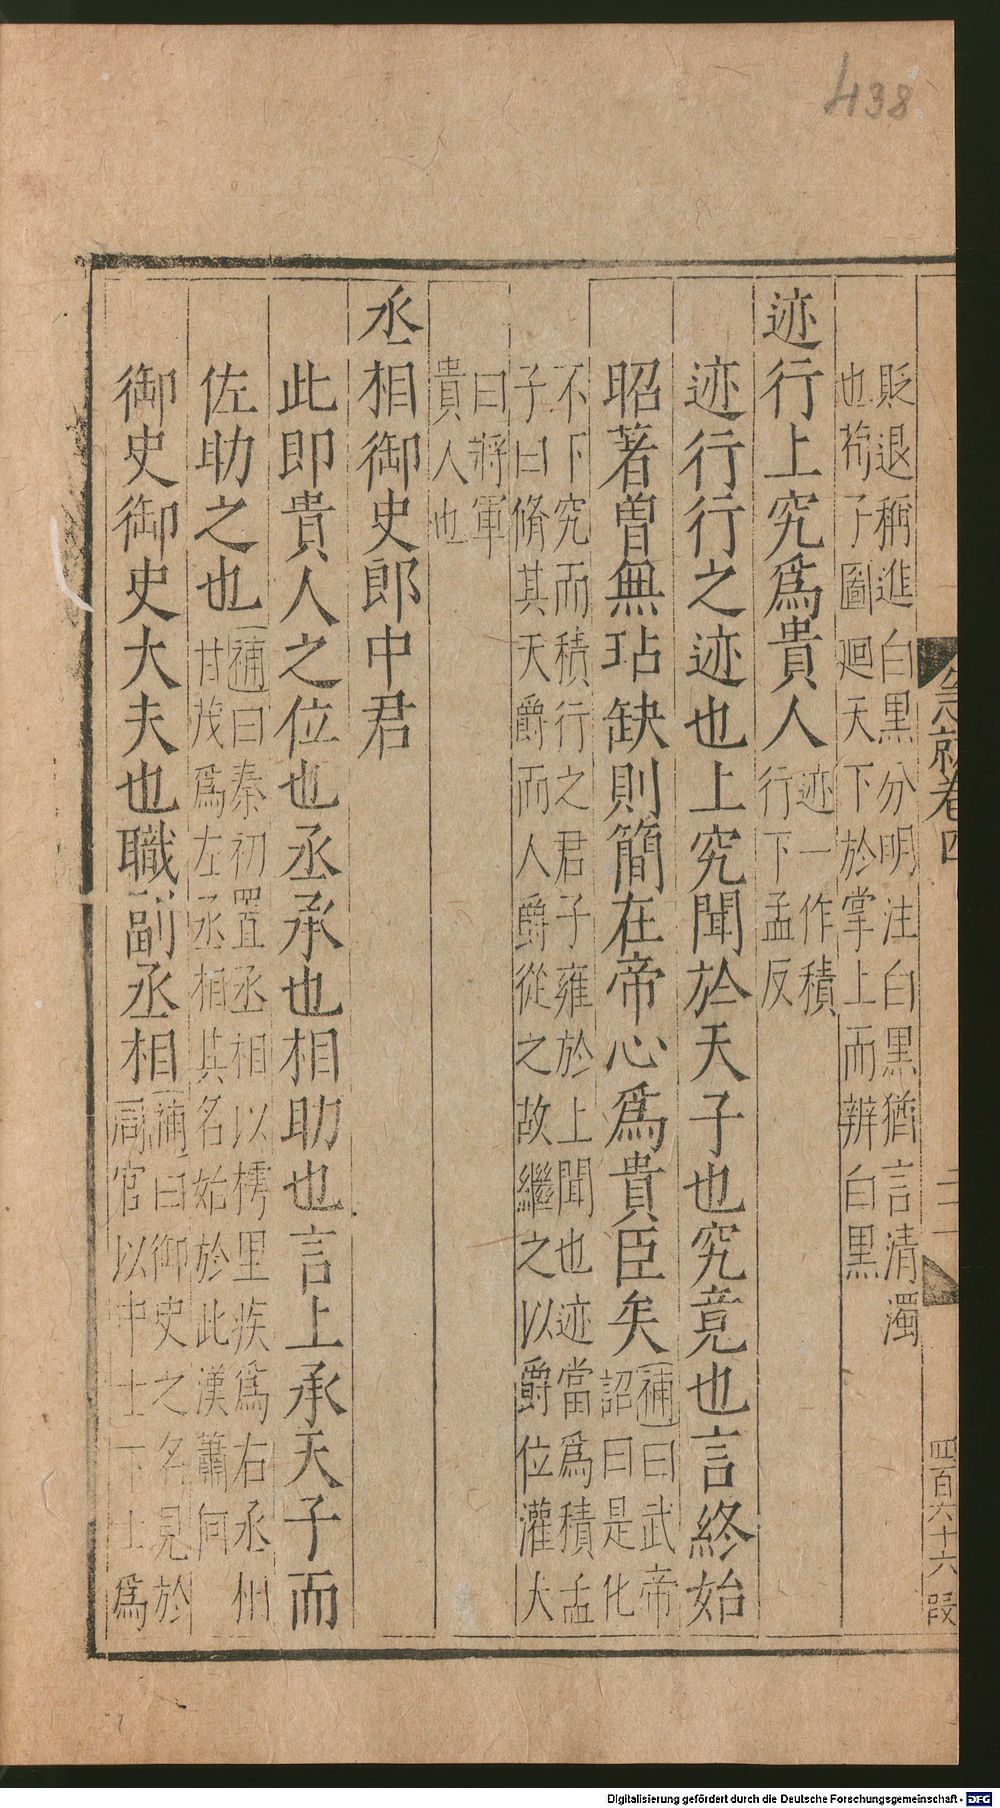 438
急就卷四
二
四百六十六 段
貶退稱進白黑分明注白黑猶言清濁
也荀子圖廻天下於掌上而辨白黑
迹行上究為貴人
迹一作積
行下孟反
迹行行之迹也上究聞於天子也究竟也言終始
昭著曽無玷缺則簡在帝心為貴臣矣
補曰武帝
詔曰是化
不下究而積行之君子雍於上聞也迹當為積孟
子曰脩其天爵而人爵從之故繼之以爵位灌大
曰將軍
貴人也
丞相御史郎中君
此即貴人之位也丞承也相助也言上承天子而
佐助之也
補曰秦初置丞相以樗里疾為右丞相
甘茂為左丞相其名始於此漢蕭何
御史御史大夫也職副丞相
補曰御史之名見於
周官以中士下士為
Digitalisierung gefördert durch die Deutsche Forschungsgemeinschaft - DFG